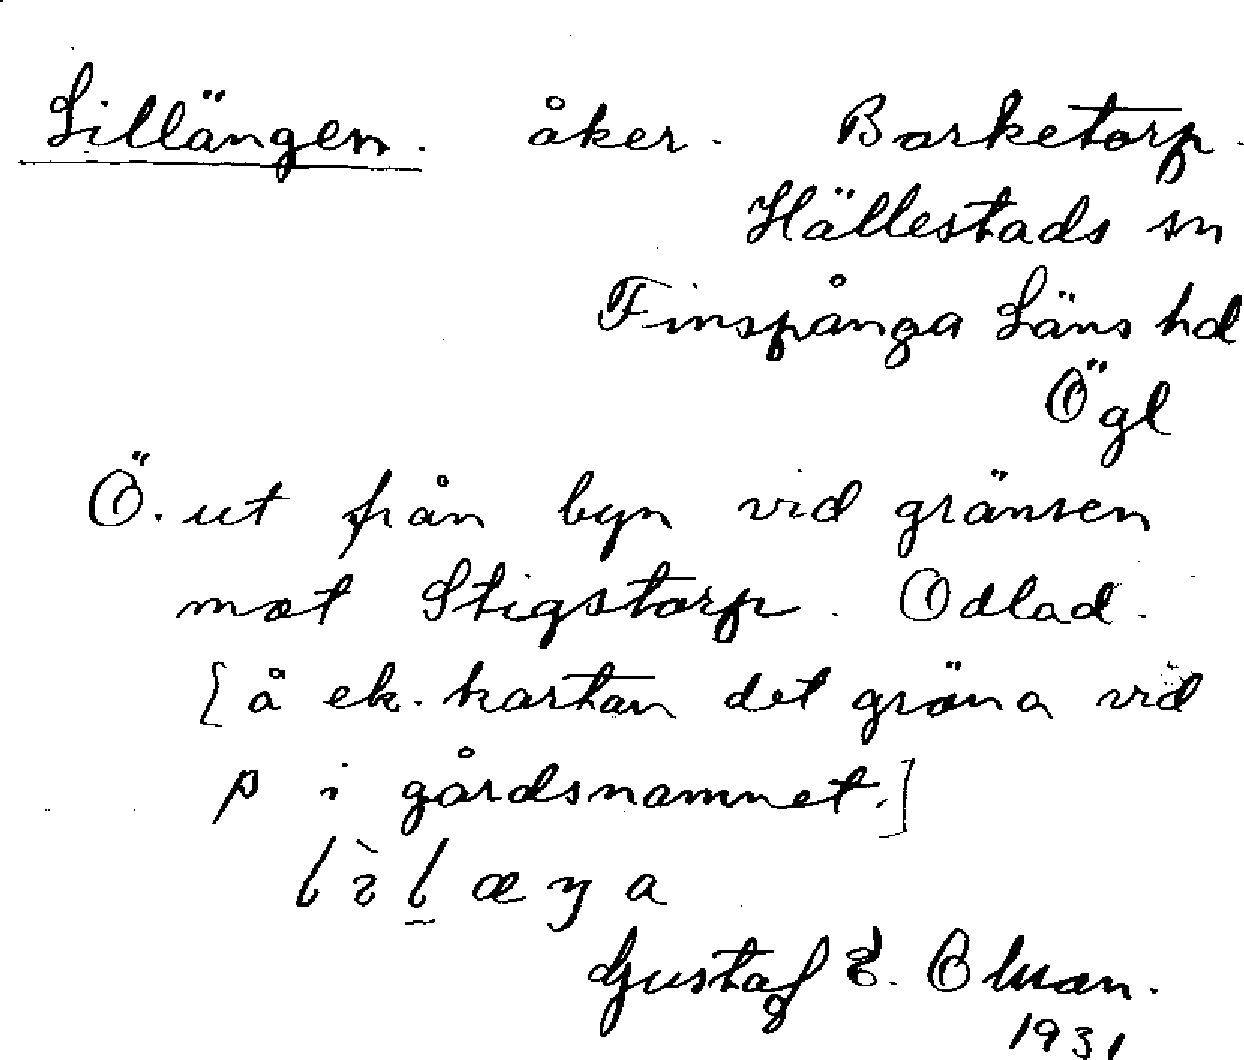 Lillängen. åker. Borketorp.
Hällestads sn
Finspånga Läns hd
Ögl
Ö. ut från byn vid gränsen
mot Stigstorp. Odlad.
[å ek. kartan det gröna vid
p i gårdsnamnet.]
Gustaf E. Olman.
1931